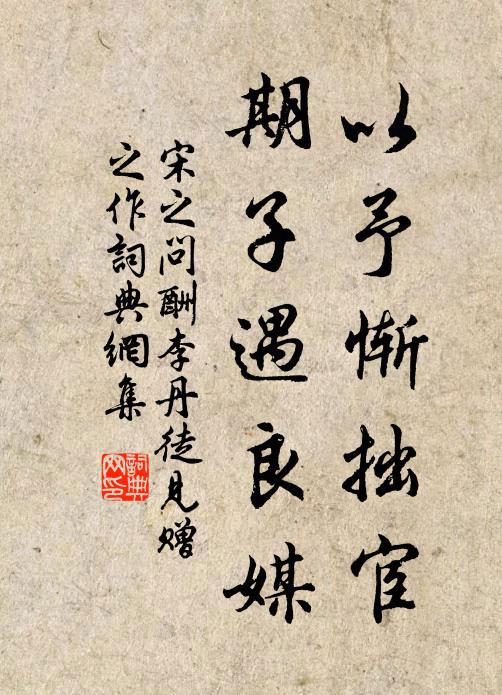 以予惭拙宦
期子遇良媒
宋之问酬李丹徒见赠
之作詞典網集
詞典网印